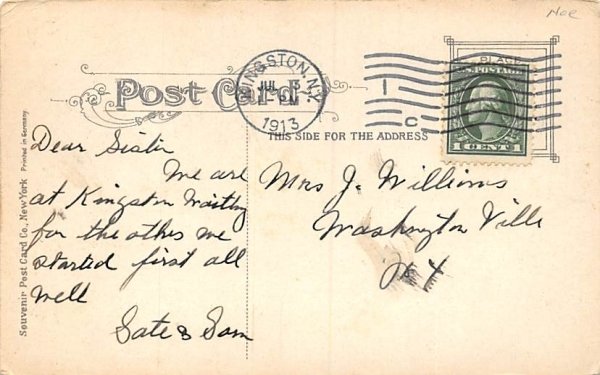 Noe
Post Card
KINGSTON, N.Y.
JUL 5
1913
1
C
PLACE
U.S. POSTAGE
1 CENT 1
THIS SIDE FOR THE ADDRESS
Souvenir Post Card Co., New York
Printed in Germany
Dear Sister
We are
at Kingston Waiting
for the others we
started first all
well
Sate & Sam
Mrs J. Williams
Washington Ville
N Y